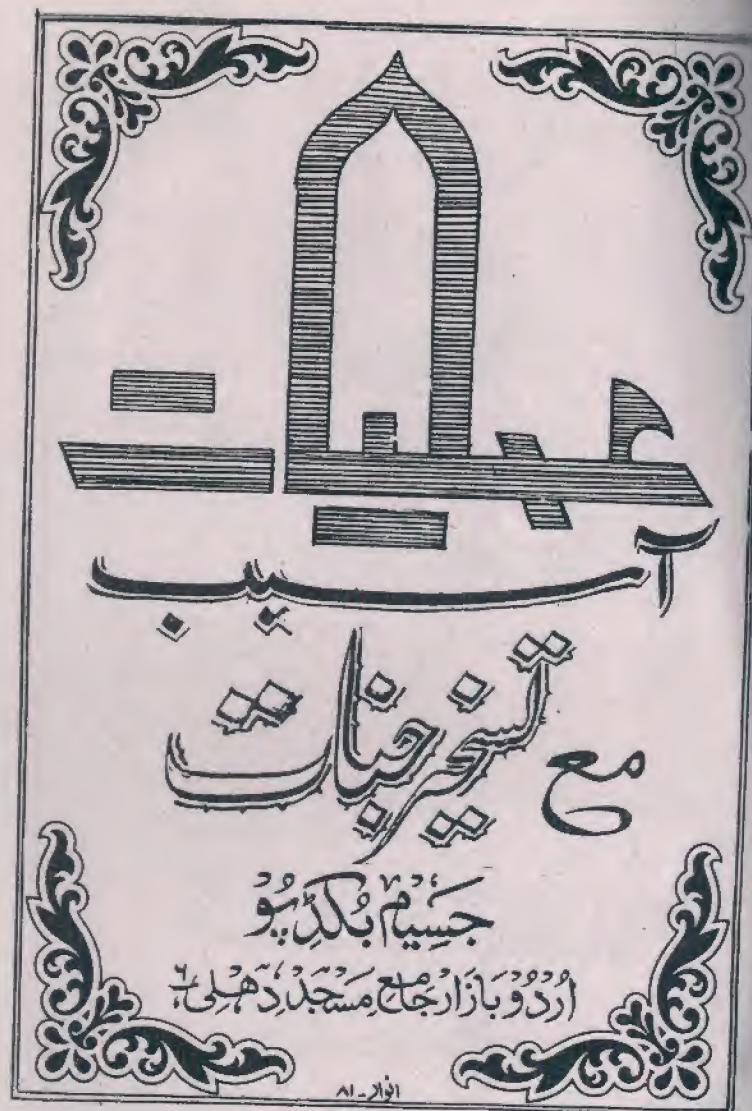 عملیات
آسیب
مع تسخیر جنات
جسیم بکڈپو
اردو بازار جامع مسجد دھلی ۶
انوار - ۸۱